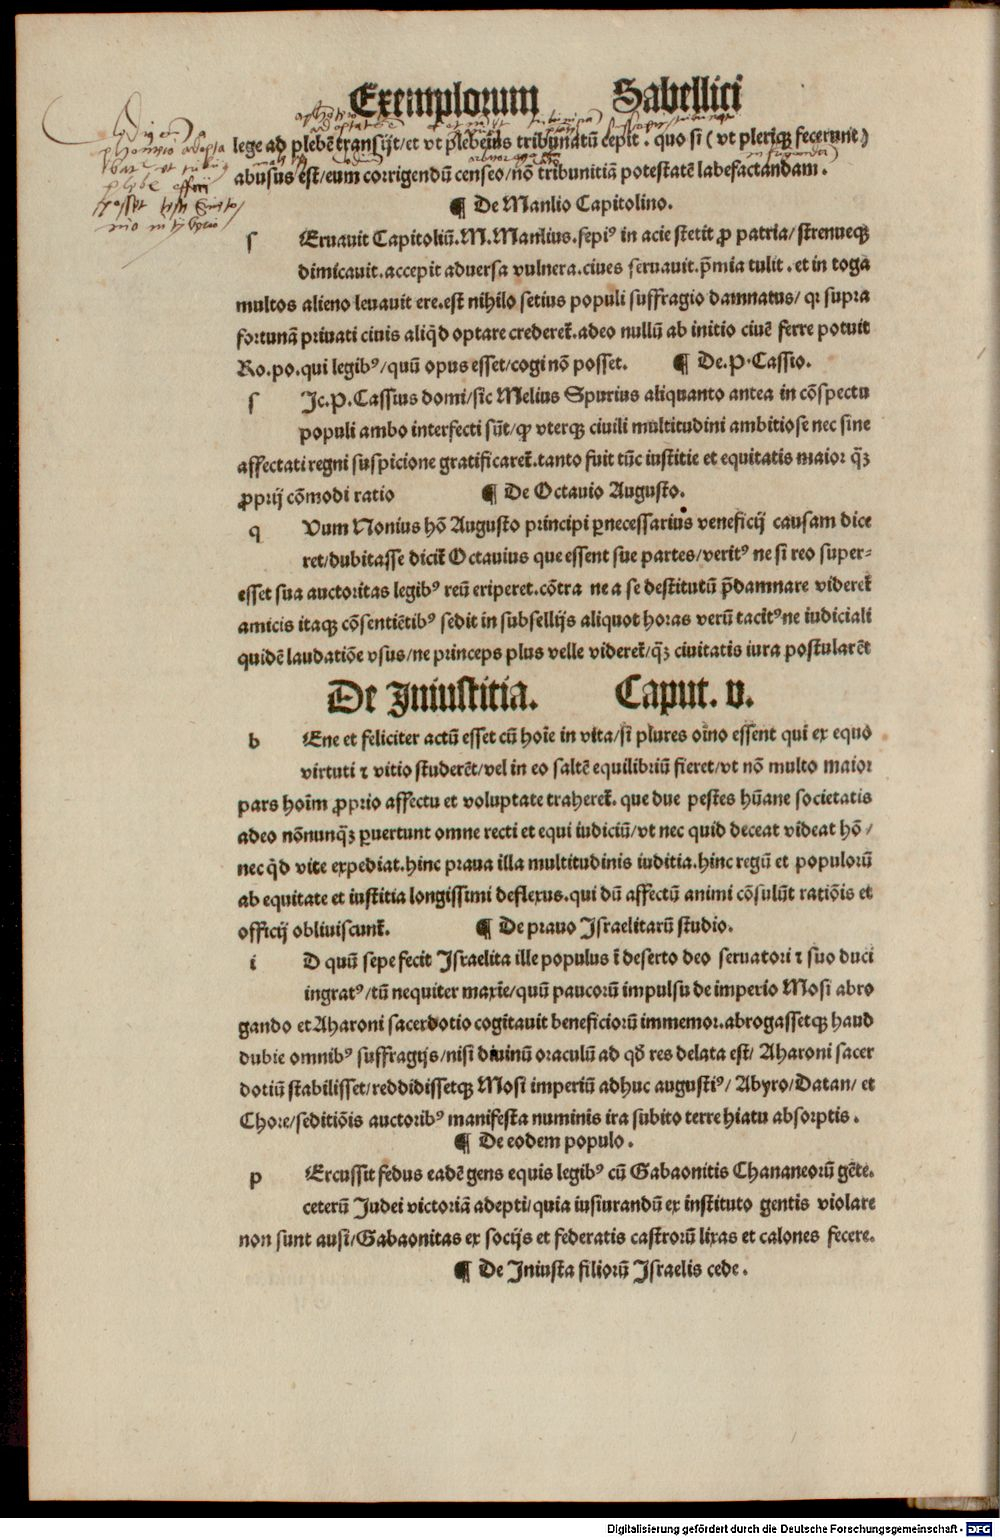 Exemplorum Sabellici
lege ad plebē transijt/et vt plebeius tribunatū cepit. quo si (vt pleriqꝫ fecerunt)
abusus est/eum corrigendū censeo/nō tribunitiā potestatē labefactandam.
¶ De Manlio Capitolino.
s Eruauit Capitoliū.M.Manlius.sepiꝰ in acie stetit ꝓ patria/strenueqꝫ
dimicauit.accepit aduersa vulnera.ciues seruauit.p̄mia tulit.et in toga
multos alieno leuauit ere.est nihilo setius populi suffragio damnatus/ qꝛ supra
fortunā priuati ciuis aliqd̄ optare crederet̄.adeo nullū ab initio ciuē ferre potuit
Ro.po.qui legibꝰ/quū opus esset/cogi nō posset. ¶ De.P.Cassio.
s Ic.P.Cassius domi/sic Melius Spurius aliquanto antea in cōspectu
populi ambo interfecti sūt/ꝙ vterqꝫ ciuili multitudini ambitiose nec sine
affectati regni suspicione gratificaret̄.tanto fuit tūc iustitie et equitatis maior q̄ꝫ
ꝓprij cōmodi ratio ¶ De Octauio Augusto.
q Uum Nonius hō Augusto principi ꝑnecessarius veneficij causam dice
ret/dubitasse dicit̄ Octauius que essent sue partes/veritꝰ ne si reo super-
esset sua auctoritas legibꝰ reū eriperet.cōtra ne a se destitutū p̄damnare videret̄
amicis itaqꝫ cōsentiētibꝰ sedit in subsellijs aliquot horas verū tacitꝰ ne iudiciali
quidē laudatiōe vsus/ne princeps plus velle videret̄/q̄ꝫ ciuitatis iura postularēt
De Iniustitia. Caput. v.
b Ene et feliciter actū esset cū hoīe in vita/si plures oīno essent qui ex equo
virtuti ⁊ vitio studerēt/vel in eo saltē equilibriū fieret/vt nō multo maior
pars hoīm ꝓprio affectu et voluptate traheret̄. que due pestes hūane societatis
adeo nōnunq̄ꝫ ꝑuertunt omne recti et equi iudiciū/vt nec quid deceat videat hō/
nec qd̄ vite expediat.hinc praua illa multitudinis iuditia.hinc regū et populorū
ab equitate et iustitia longissimi deflexus.qui dū affectū animi cōsulūt ratiōis et
officij obliuiscunt̄. ¶ De prauo Israelitarū studio.
i D quū sepe fecit Israelita ille populus ī deserto deo seruatori ⁊ suo duci
ingratꝰ/tū nequiter maxīe/quū paucorū impulsu de imperio Mosi abro
gando et Aharoni sacerdotio cogitauit beneficiorū immemor.abrogassetqꝫ haud
dubie omnibꝰ suffragijs/nisi diuinū oraculū ad qd̄ res delata est/ Aharoni sacer
dotiū stabilisset/reddidissetqꝫ Mosi imperiū adhuc augustiꝰ/ Abyro/Datan/ et
Chore/seditiōis auctoribꝰ manifesta numinis ira subito terre hiatu absorptis.
¶ De eodem populo.
p Ercussit fedus eadē gens equis legibꝰ cū Gabaonitis Chananeorū gēte.
ceterū Judei victoriā adepti/quia iusiurandū ex instituto gentis violare
non sunt ausi/Gabaonitas ex socijs et federatis castrorū lixas et calones fecere.
¶ De Iniusta filiorū Israelis cede.
Digitalisierung gefördert durch die Deutsche Forschungsgemeinschaft - DFG